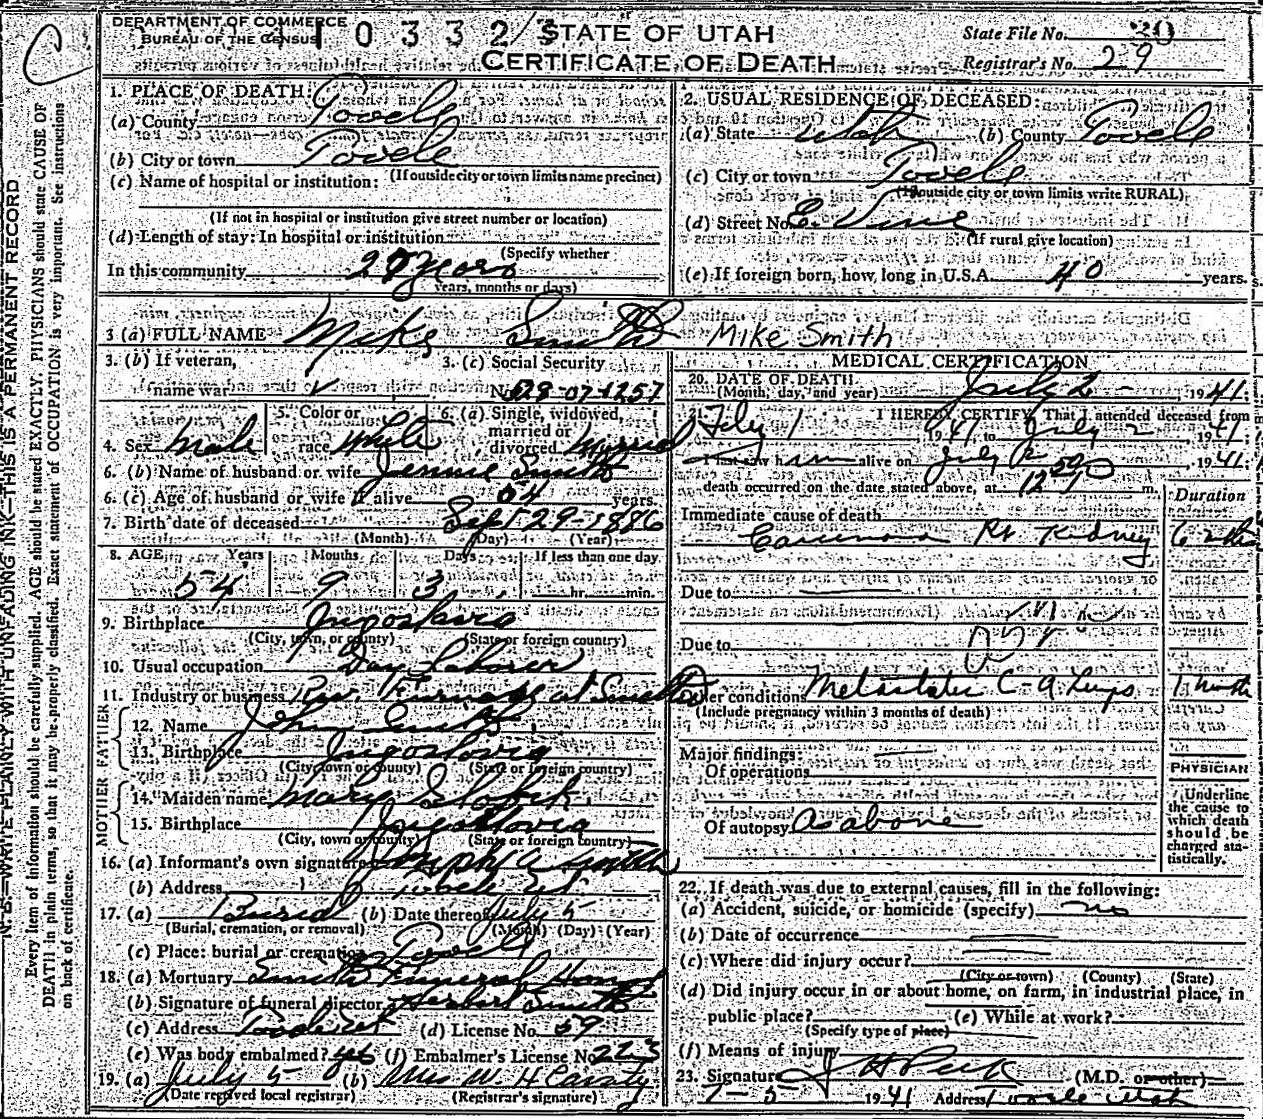 DEPARTMENT OF COMMERCE
BUREAU OF THE CENSUS
0 3 3 2/3
STATE OF UTAH
CERTIFICATE OF DEATH
State File No. 30
Registrar's No. 29
N. B.—WRITE PLAINLY WITH UNFADING INK—THIS IS A PERMANENT RECORD
Every item of information should be carefully supplied. AGE should be stated EXACTLY. PHYSICIANS should state CAUSE OF
DEATH in plain terms, so that it may be properly classified. Exact statement of OCCUPATION is very important. See instructions
on back of certificate.
1. PLACE OF DEATH:
(a) County Tooele
(b) City or town Tooele
(If outside city or town limits name precinct)
(c) Name of hospital or institution:
(If not in hospital or institution give street number or location)
(d) Length of stay: In hospital or institution
(Specify whether
In this community 29 years
years, months or days)
2. USUAL RESIDENCE OF DECEASED
(a) State Utah (b) County Tooele
(c) City or town Tooele
(If outside city or town limits write RURAL)
(d) Street No. E. Vine
(If rural give location)
(e) If foreign born, how long in U.S.A. 40 years.
3 (a) FULL NAME Mike Smith Mike Smith
3. (b) If veteran,
name war
3. (c) Social Security
No. 528-07-1257
4. Sex male
5. Color or
race White
6. (a) Single, widowed,
married or
divorced Married
6. (b) Name of husband or wife Jennie Smith
6. (c) Age of husband or wife if alive 54 years.
7. Birth date of deceased Sept 29-1886
(Month) (Day) (Year)
8. AGE Years Months Days If less than one day
54 9 3 hr. min.
9. Birthplace Jugoslavia
(City, town, or county) (State or foreign country)
10. Usual occupation Day Laborer
11. Industry or business Rev. Furnace at Smelter
FATHER
12. Name John Smith
13. Birthplace Jugoslovia
(City, town or county) (State or foreign country)
MOTHER
14. Maiden name Mary
15. Birthplace Jugoslovia
(City, town or county) (State or foreign country)
16. (a) Informant's own signature Joseph A Smith
(b) Address Tooele Ut
17. (a) Burial (b) Date thereof July 5
(Burial, cremation, or removal) (Month) (Day) (Year)
(c) Place: burial or cremation Tooele
18. (a) Mortuary Smith Funeral Home
(b) Signature of funeral director Herbert Smith
(c) Address Tooele Ut (d) License No. 59
(e) Was body embalmed? yes (f) Embalmer's License No. 223
19. (a) July 5 (b) Mrs W. H.
(Date received local registrar) (Registrar's signature)
MEDICAL CERTIFICATION
20. DATE OF DEATH July 2 - , 1941.
(Month, day, and year)
21. I HEREBY CERTIFY, That I attended deceased from
Feby 1 1941, to July 2 1941,
I last saw him alive on July 2, 1941;
death occurred on the date stated above, at 12 50 m.
Duration
Immediate cause of death
Carcinoma Rt Kidney 6 mths
Due to
Due to
Other conditions Metastatic C-a Lungs 1 month
(Include pregnancy within 3 months of death)
Major findings:
Of operations
Of autopsy as above
PHYSICIAN
Underline
the cause to
which death
should be
charged sta-
tistically.
22. If death was due to external causes, fill in the following:
(a) Accident, suicide, or homicide (specify) no
(b) Date of occurrence
(c) Where did injury occur?
(City or town) (County) (State)
(d) Did injury occur in or about home, on farm, in industrial place, in
public place? (e) While at work?
(Specify type of place)
(f) Means of injury
23. Signature J H Peck (M.D. or other)
7-5 1941 Address Tooele Utah